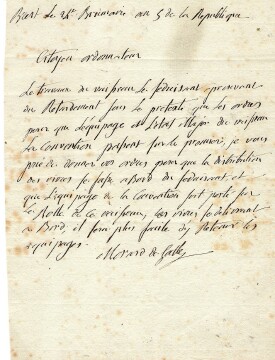 Brest le 24 Brumaire an 5 de la République
Citoyen ordonnateur
Le travaux du vaisseau le
du Retardement sous le pretexte que les ordres
pour que l'équipage et l'Etat Major du vaisseau
la Convention passent sur le premier, je vous
prie de donner vos ordres pour que la distribution
des vivres se fasse a Bord du
que l'équipage de la Convention soit porté sur
le Rolle de ce vaisseau, les vivres se delivrant
a Bord, il sera plus facile d'y Retenir les
équipages.
Morard de Galles